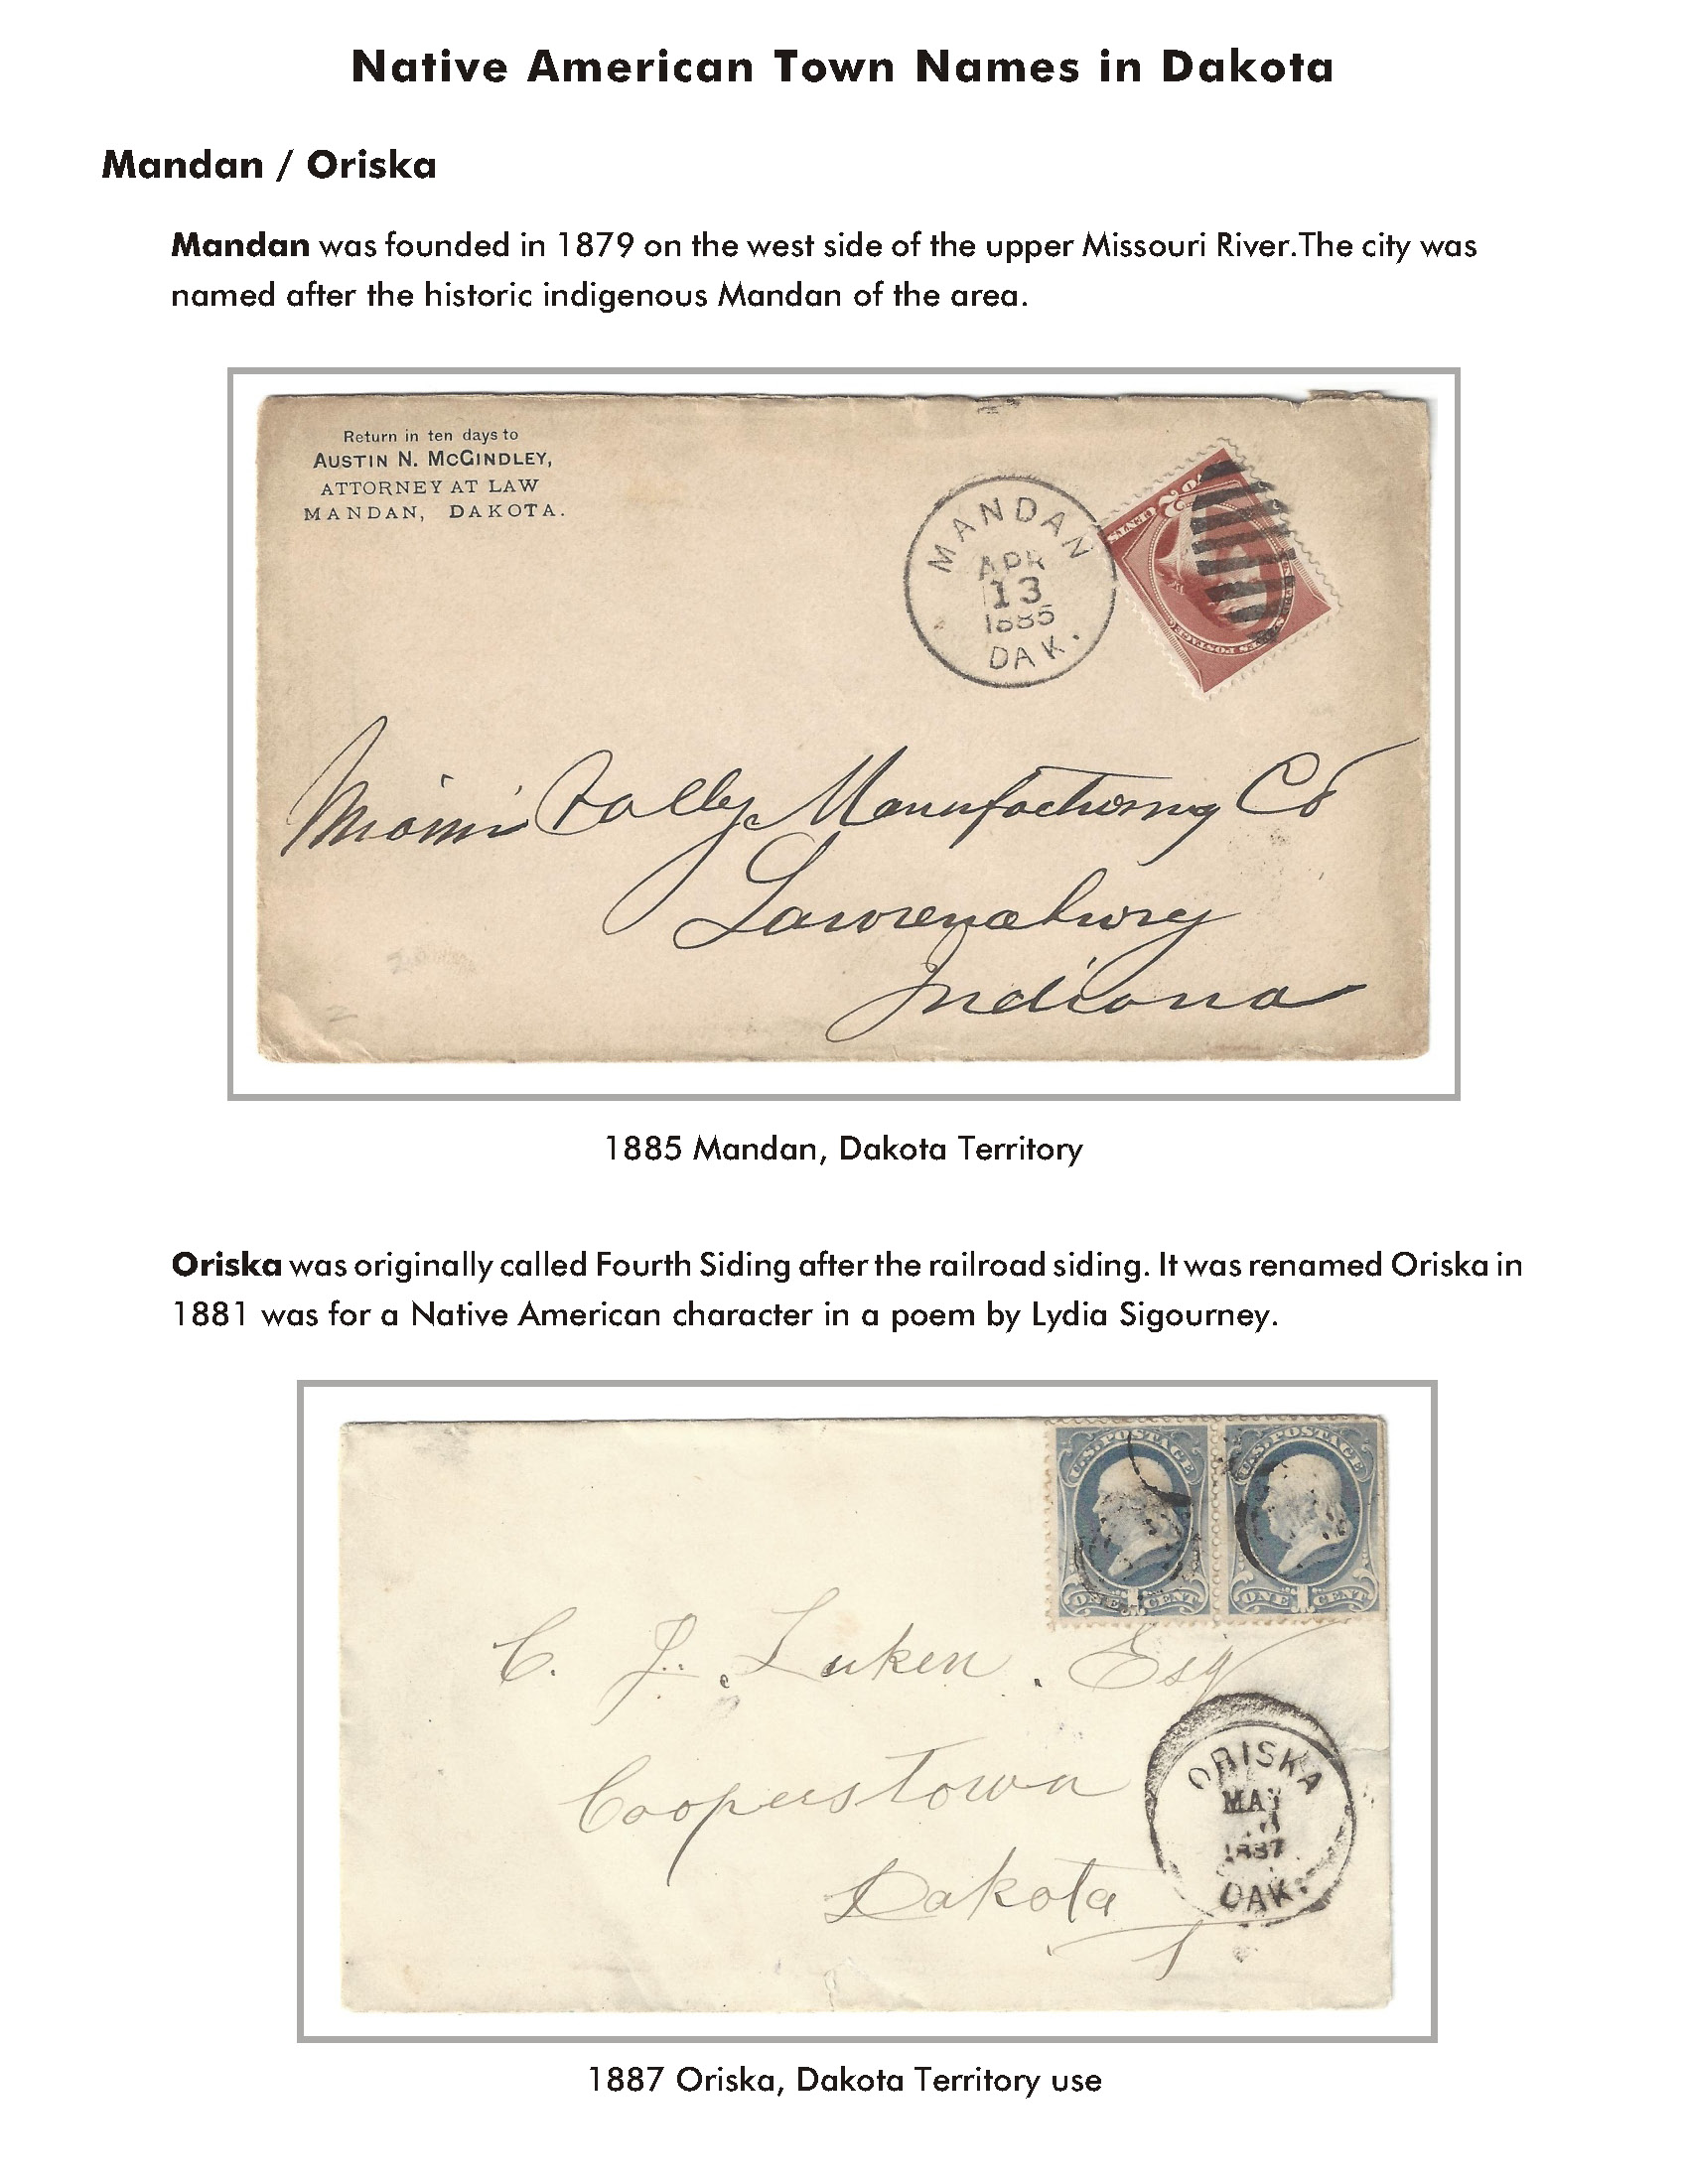 Native American Town Names in Dakota
Mandan / Oriska
Mandan was founded in 1879 on the west side of the upper Missouri River.The city was
named after the historic indigenous Mandan of the area.
Return in ten days to
AUSTIN N. McGINDLEY,
ATTORNEY AT LAW
MANDAN, DAKOTA.
MANDAN
APR
13
1885
DAK.
CENTS
Miami Vally Manufacturing Co
Lawrenceburg
Indiana
1885 Mandan, Dakota Territory
Oriska was originally called Fourth Siding after the railroad siding. It was renamed Oriska in
1881 was for a Native American character in a poem by Lydia Sigourney.
U.S. POSTAGE
ONE 1 CENT
U.S. POSTAGE
ONE 1 CENT
C. J. Luken. Esq
Cooperstown
Dakota
ORISKA
MAY
1887
DAK.
1887 Oriska, Dakota Territory use